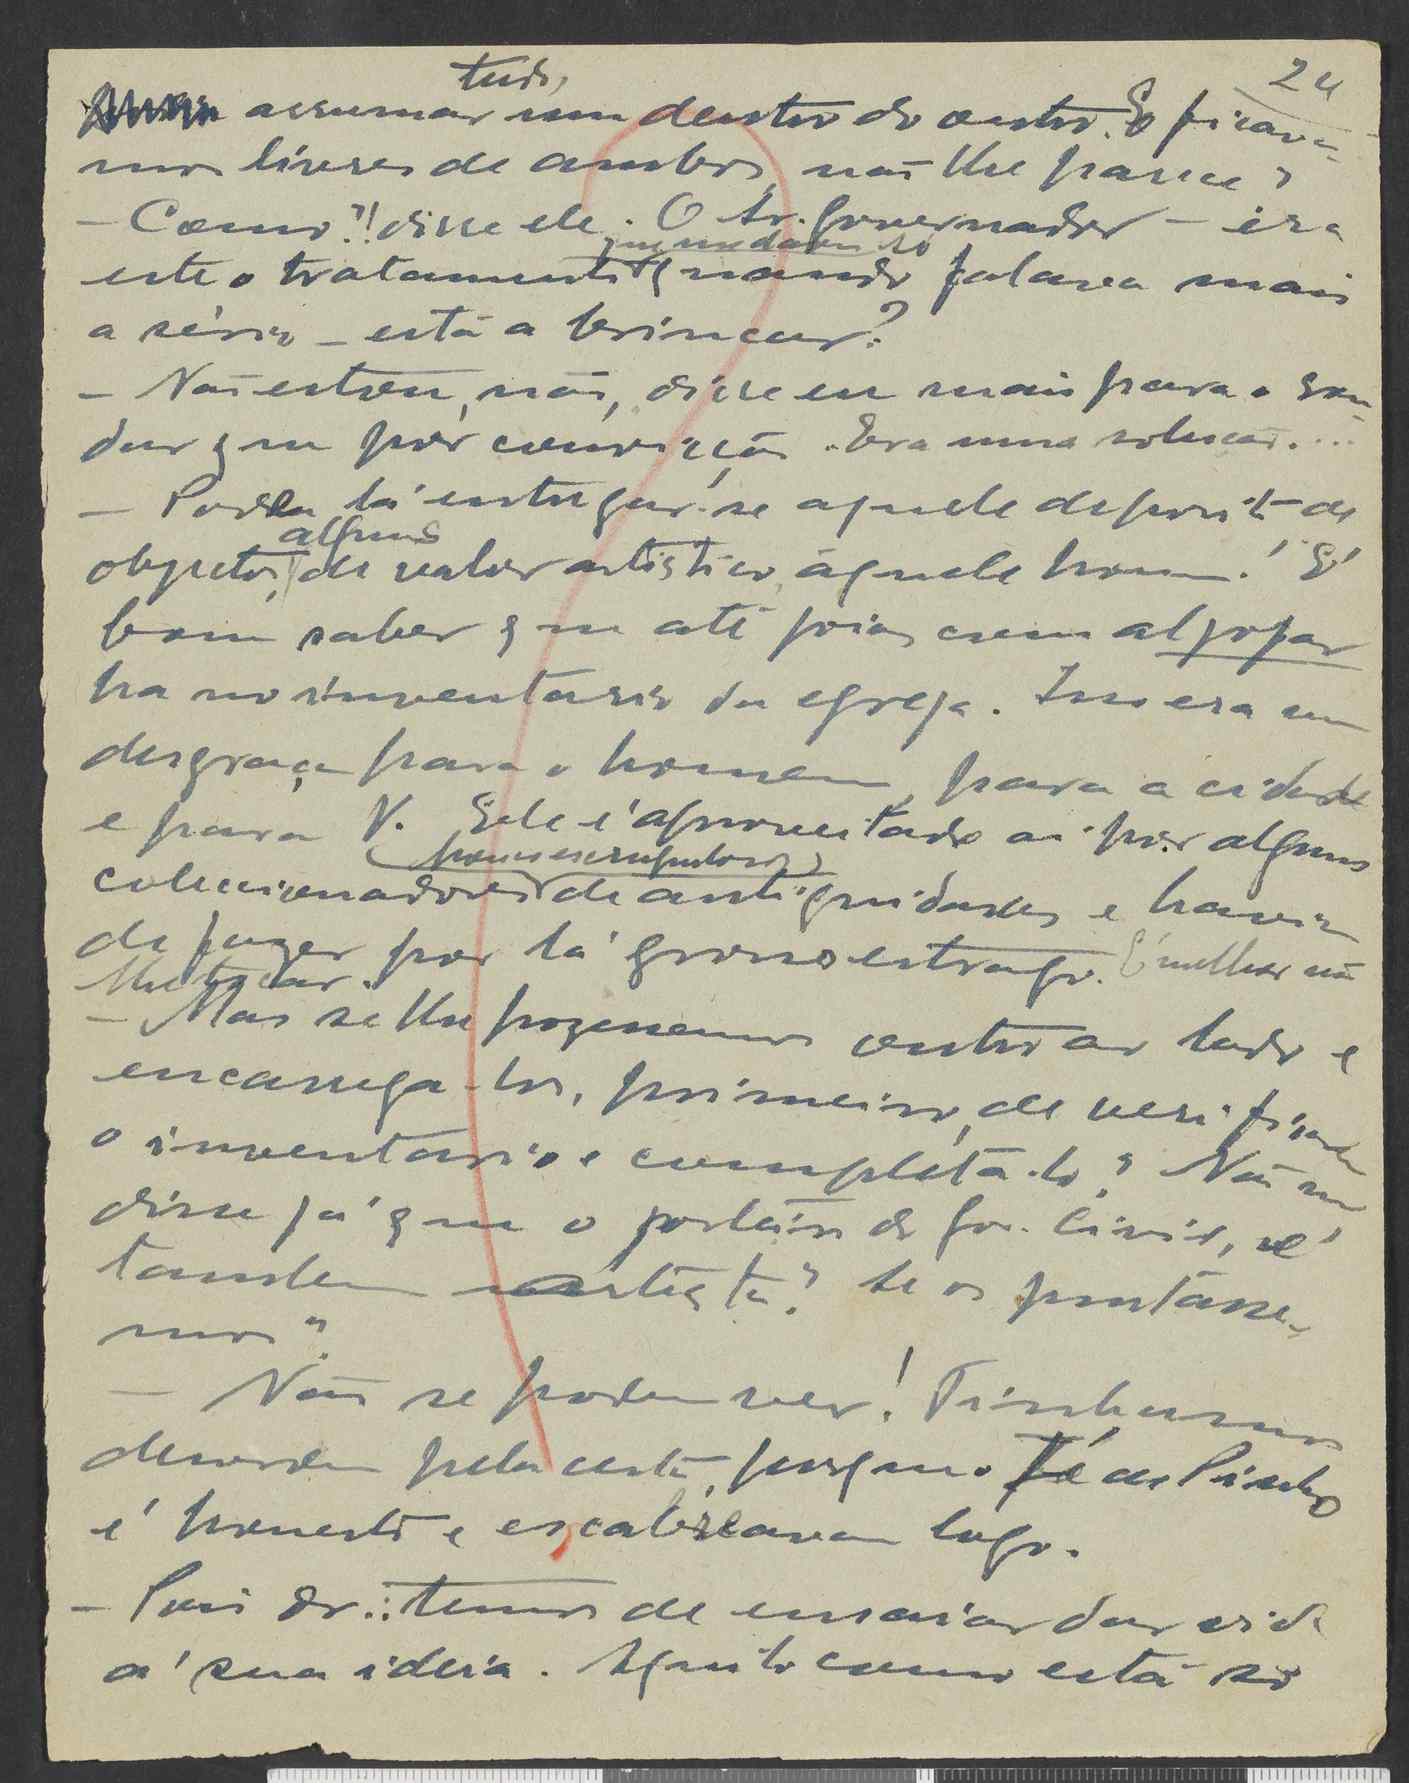 24
tudo,
arrumar um dentro do outro. E ficava-
mos livres de ambos, não lhe parece?
— Como?!! disse ele. O Sr. Governador — era
que me dava só
este o tratamento quando falava mais
a sério — está a brincar?
— Não estou, não, disse eu mais para o son-
dar que por convicção. Era uma solução...
— Podia lá entregar-se aquele deposito de
alguns
objectos, de valor artistico, àquele homem! E'
bom saber que até joias com aljofar
ha no inventario da egreja. Isso era um
desgraça para o homem, para a cidade
e para V. Ele é aproveitado aí por alguns
(pouco escrupulosos)
coleccionadores de antiguidades e havia
de fazer por lá grosso estrago. E' melhor não
lhe tocar.
— Mas se lhe pozessemos outro ao lado e
encarrega-los, primeiro, de verificar
o inventario e completá-lo? Não me
disse já que o porteiro do Gov. Civil, é
tambem artista? Se os juntasse-
mos?
— Não se podem ver! Tinhamos
desordem pela certa, porque o Zé de Pinho
é honesto e escabreava logo.
— Pois dr.: temos de ensaiar dar vida
a' sua ideia. Aquilo como está só